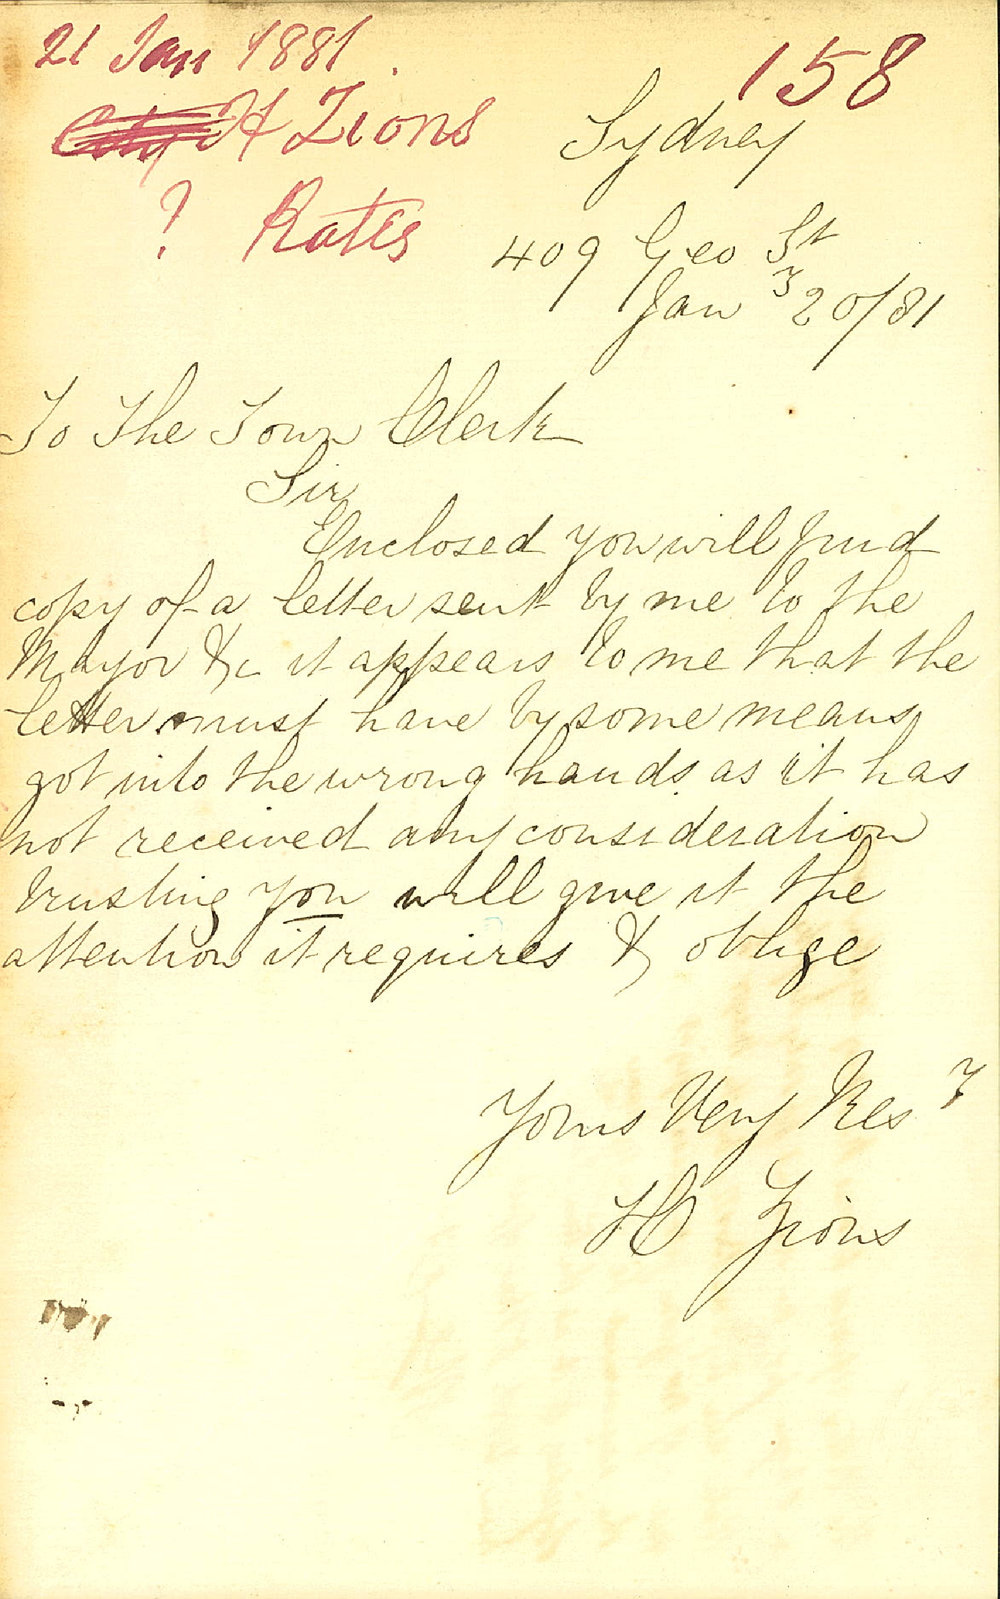 21 Jan 1881.
158
City H Zions
? Rates
Sydney
409 Geo St
Jany 20/81
To The Town Clerk
Sir
Enclosed you will find
copy of a letter sent by me to the
Mayor &c it appears to me that the
letter must have by some means
got into the wrong hands as it has
not received any consideration
trusting you will give it the
attention it requires & oblige
Yours Very Resy
H Zions